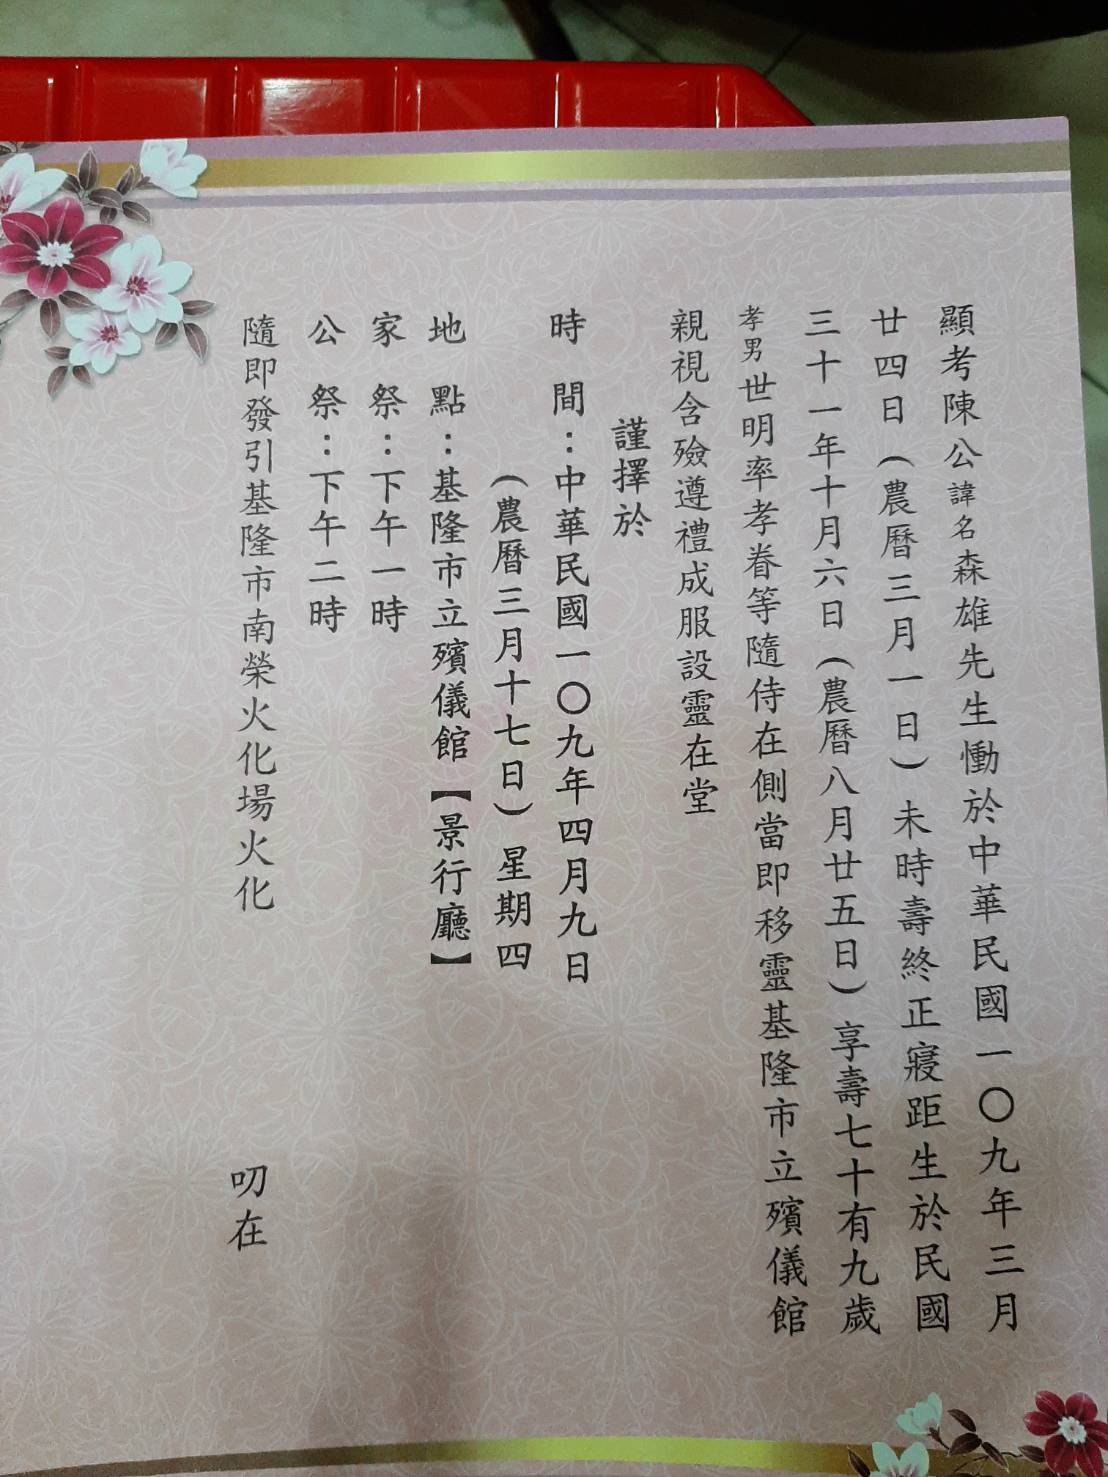 顯考陳公諱名森雄先生慟於中華民國一〇九年三月
廿四日(農曆三月一日)未時壽終正寢距生於民國
三十一年十月六日(農曆八月廿五日)享壽七十有九歲
孝男世明率孝眷等隨侍在側當即移靈基隆市立殯儀館
親視含殮遵禮成服設靈在堂
謹擇於
時間:中華民國一〇九年四月九日
(農曆三月十七日)星期四
地點:基隆市立殯儀館【景行廳】
家祭:下午一時
公祭:下午二時
隨即發引基隆市南榮火化場火化
叨在